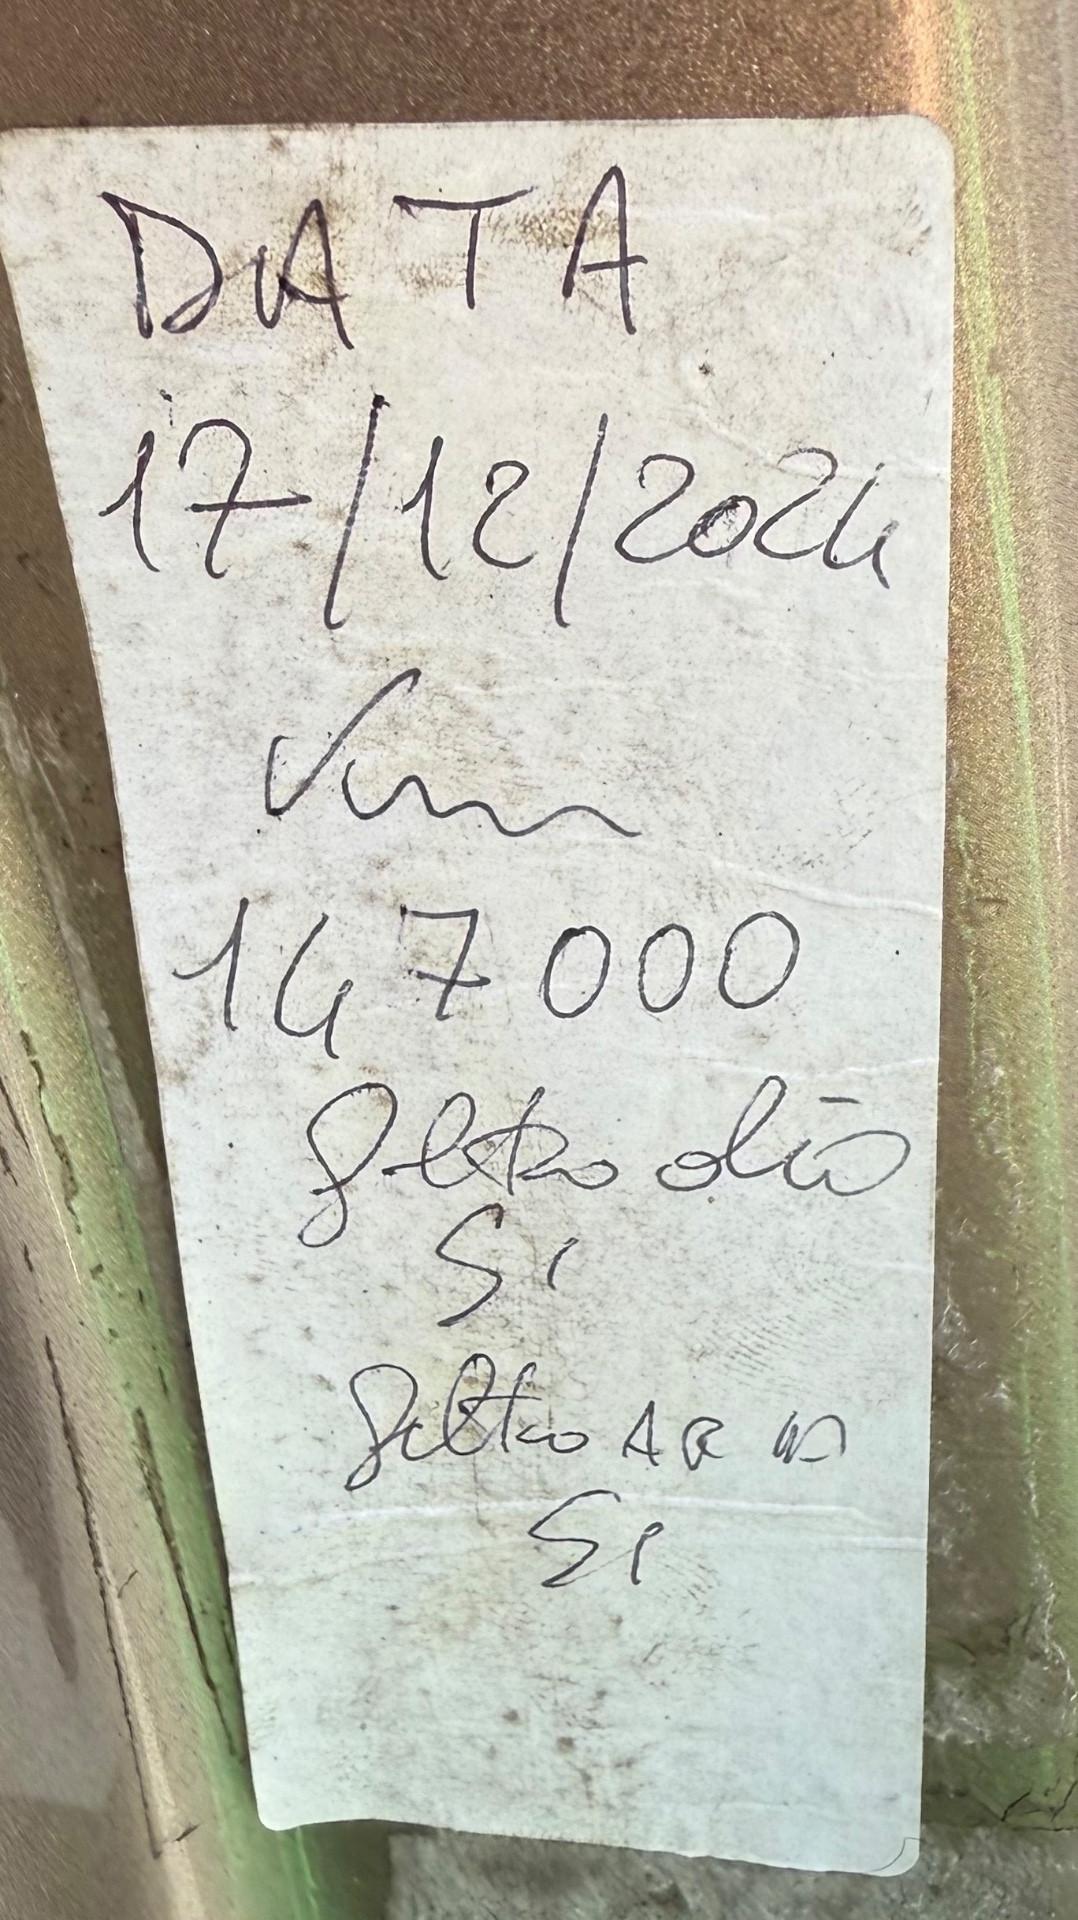 DATA
17/12/2024
Km
147000
filtro olio
Si
filtro ARIA
Si